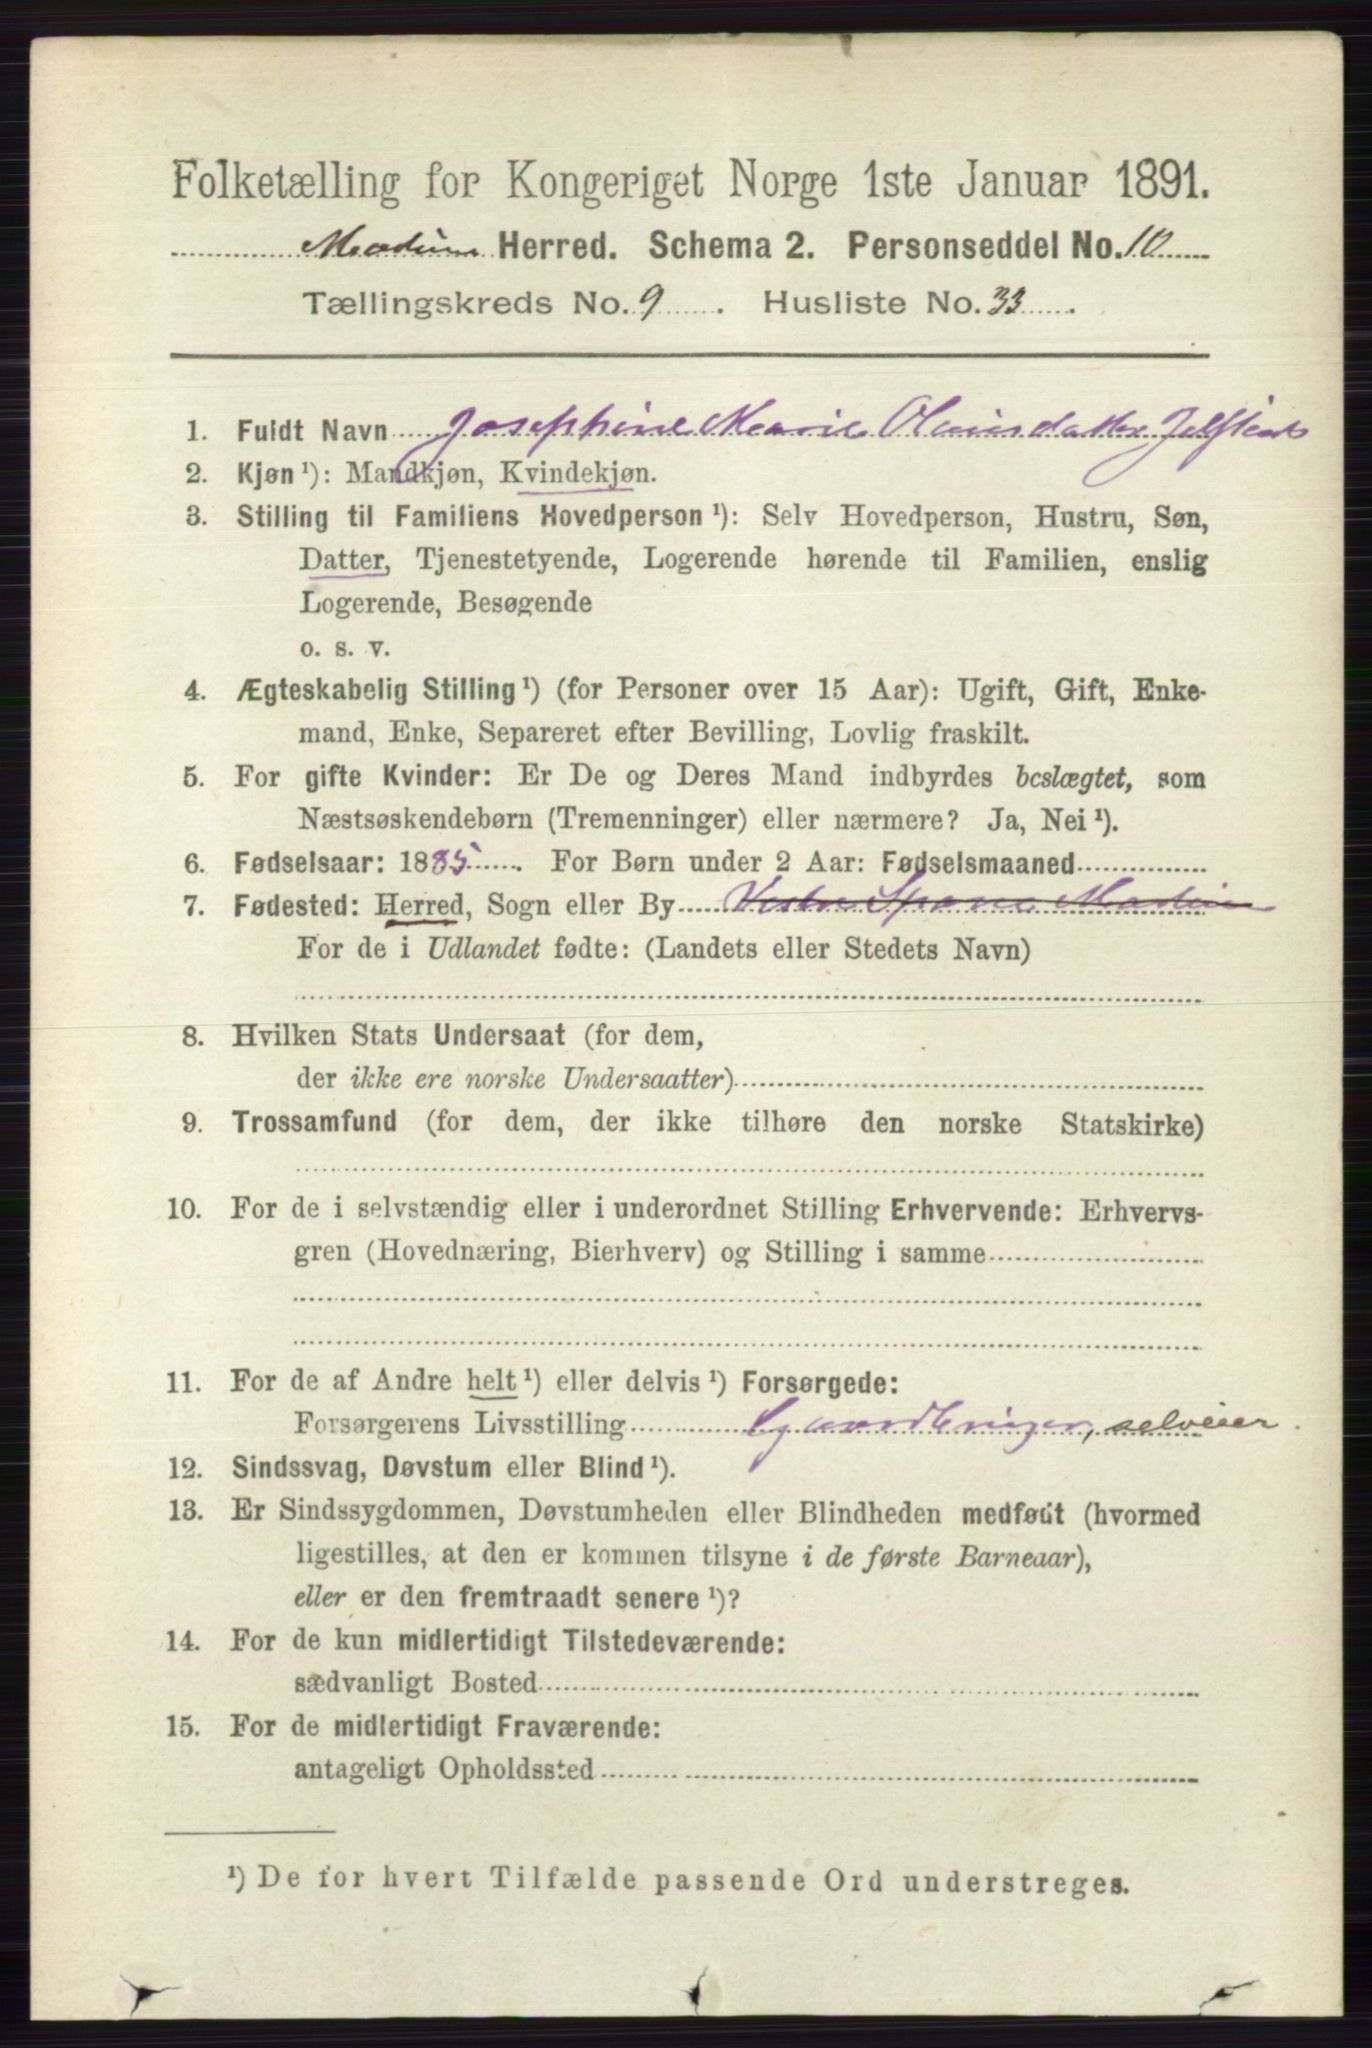 Folketælling for Kongeriget Norge 1ste Januar 1891.
Modum Herred. Schema 2. Personseddel No. 10
Tællingskreds No. 9. Husliste No. 33.
1. Fuldt Navn Josephine Marie Olausdatter
2. Kjøn ¹): Mandkjøn, Kvindekjøn.
3. Stilling til Familiens Hovedperson ¹): Selv Hovedperson, Hustru, Søn,
Datter, Tjenestetyende, Logerende hørende til Familien, enslig
Logerende, Besøgende
o. s. v.
4. Ægteskabelig Stilling ¹) (for Personer over 15 Aar): Ugift, Gift, Enke-
mand, Enke, Separeret efter Bevilling, Lovlig fraskilt.
5. For gifte Kvinder: Er De og Deres Mand indbyrdes beslægtet, som
Næstsøskendebørn (Tremenninger) eller nærmere? Ja, Nei ¹).
6. Fødselsaar: 1885. For Børn under 2 Aar: Fødselsmaaned
7. Fødested: Herred, Sogn eller By Vestre Spone Modum
For de i Udlandet fødte: (Landets eller Stedets Navn)
8. Hvilken Stats Undersaat (for dem,
der ikke ere norske Undersaatter)
9. Trossamfund (for dem, der ikke tilhøre den norske Statskirke)
10. For de i selvstændig eller i underordnet Stilling Erhvervende: Erhvervs-
gren (Hovednæring, Bierhverv) og Stilling i samme
11. For de af Andre helt ¹) eller delvis ¹) Forsørgede:
Forsørgerens Livsstilling Gaardbruger, selveier.
12. Sindssvag, Døvstum eller Blind ¹).
13. Er Sindssygdommen, Døvstumheden eller Blindheden medfødt (hvormed
ligestilles, at den er kommen tilsyne i de første Barneaar),
eller er den fremtraadt senere ¹)?
14. For de kun midlertidigt Tilstedeværende:
sædvanligt Bosted
15. For de midlertidigt Fraværende:
antageligt Opholdssted
¹) De for hvert Tilfælde passende Ord understreges.